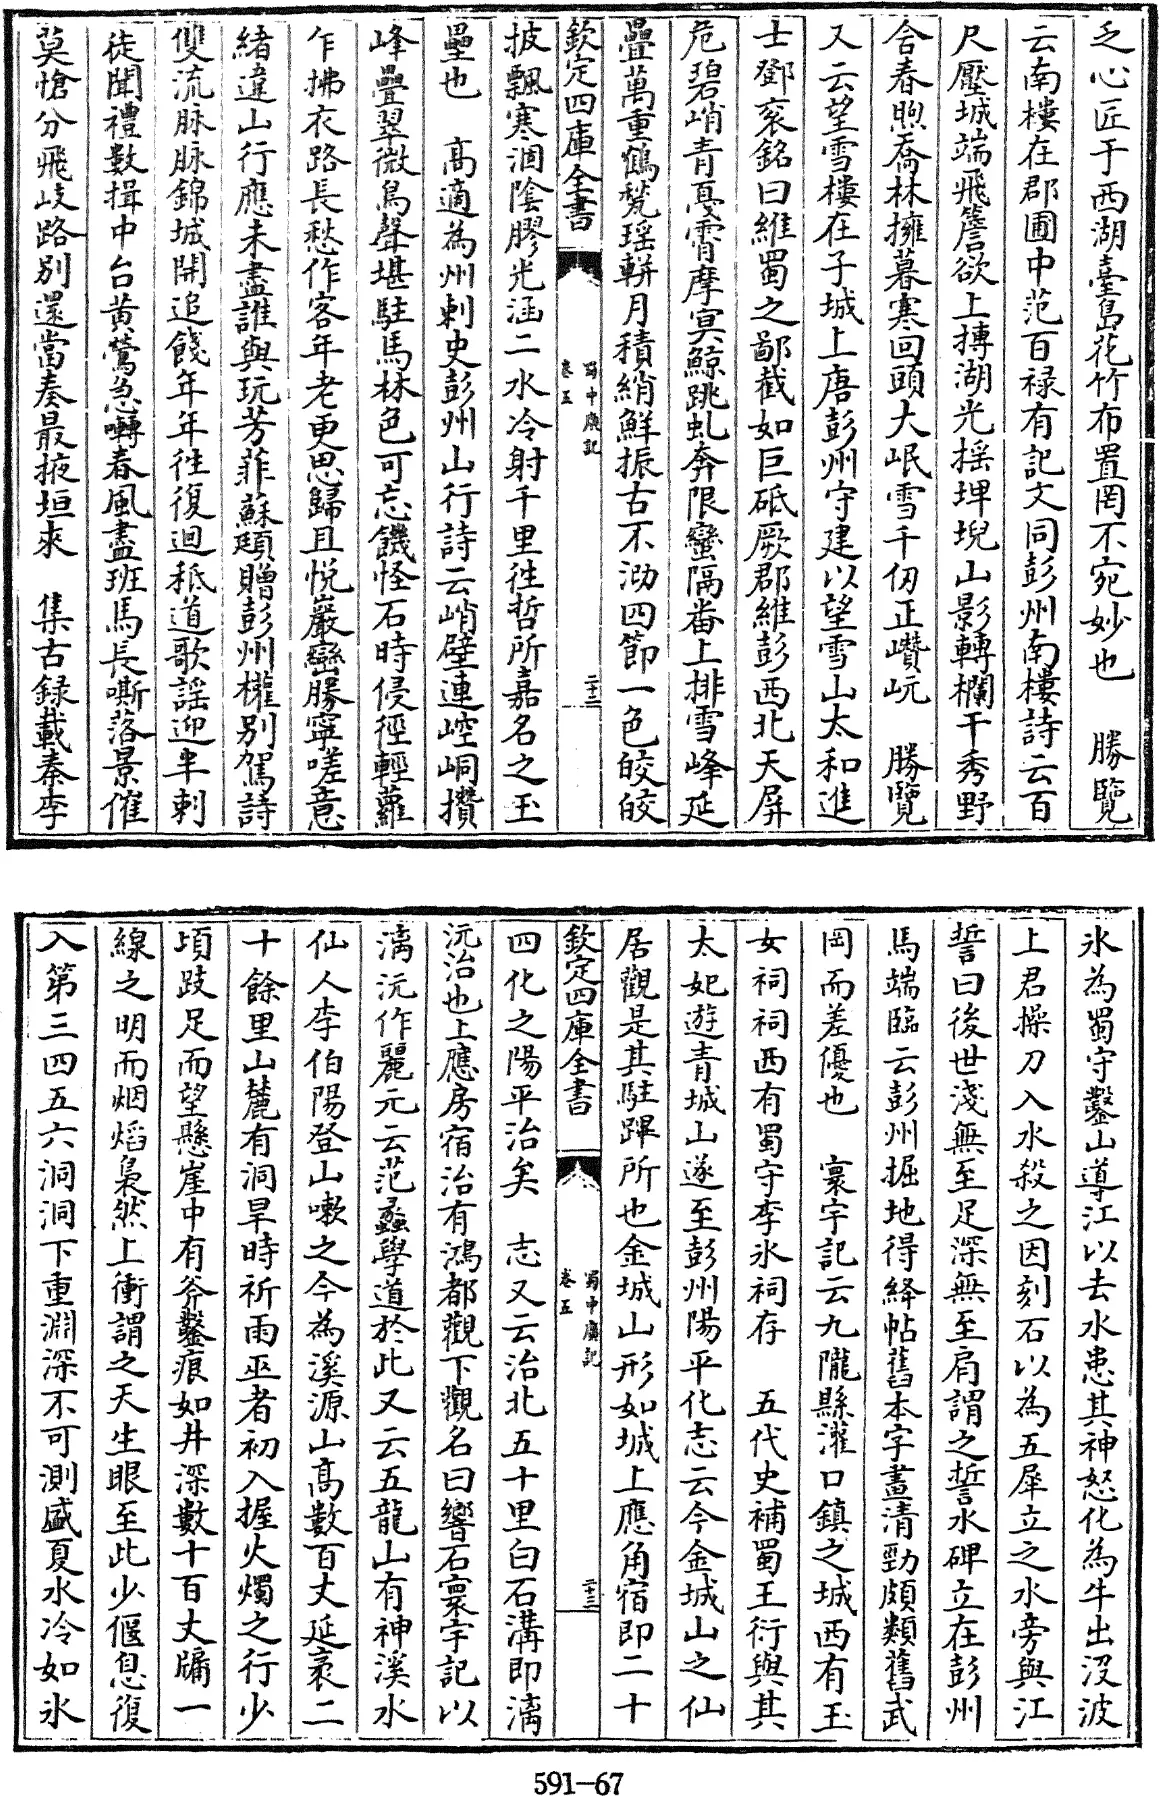 乏心匠于西湖臺島花竹布置罔不宛妙也　勝覽
云南樓在郡圃中范百祿有記文同彭州南樓詩云百
尺壓城端飛簷欲上摶湖光揺埤堄山影轉欄干秀野
合春煦喬林擁暮寒回頭大岷雪千仞正巑岏　勝覽
又云望雪樓在子城上唐彭州守建以望雪山太和進
士鄧衮銘曰維蜀之鄙截如巨砥厥郡維彭西北天屏
危碧峭青戞霄摩㝠鯨跳虬奔限蠻隔畨上排雪峰延
疊萬重鶴甃瑶軿月積綃鮮振古不泐四節一色皎皎
欽定四庫全書
蜀中廣記
卷五
二十二
披飄寒澗陰膠光涵二水冷射千里徃哲所嘉名之玉
壘也　高適為州刺史彭州山行詩云峭壁連崆峒攢
峰疊翠微鳥聲堪駐馬林色可忘饑怪石時侵徑輕蘿
乍拂衣路長愁作客年老更思歸且悅巖巒勝寧嗟意
緒違山行應未盡誰與玩芳菲蘇頲贈彭州權别駕詩
雙流脉脉錦城開追餞年年徃復迴秪道歌謡迎半刺
徒聞禮數揖中台黄鶯急囀春風盡班馬長嘶落景催
莫愴分飛岐路别還當奏最掖垣來　集古錄載秦李
氷為蜀守鑿山導江以去水患其神怒化為牛出沒波
上君操刀入水殺之因刻石以為五犀立之水旁與江
誓曰後世淺無至足深無至肩謂之誓水碑立在彭州
馬端臨云彭州掘地得絳帖舊本字畫清勁頗類舊武
岡而差優也　寰宇記云九隴縣灌口鎮之城西有玉
女祠祠西有蜀守李氷祠存　五代史補蜀王衍與其
太妃遊青城山遂至彭州陽平化志云今金城山之仙
居觀是其駐蹕所也金城山形如城上應角宿即二十
欽定四庫全書
蜀中廣記
卷五
二十三
四化之陽平治矣　志又云治北五十里白石溝即漓
沅治也上應房宿治有鴻都觀下觀名曰響石寰宇記以
漓沅作麗元云范蠡學道於此又云五龍山有神溪水
仙人李伯陽登山嗽之今為溪源山高數百丈延袤二
十餘里山麓有洞旱時祈雨巫者初入握火燭之行少
頃跂足而望懸崖中有斧鑿痕如井深數十百丈牖一
線之明而烟焰裊然上衝謂之天生眼至此少偃息復
入第三四五六洞洞下重淵深不可測盛夏水冷如氷
591-67